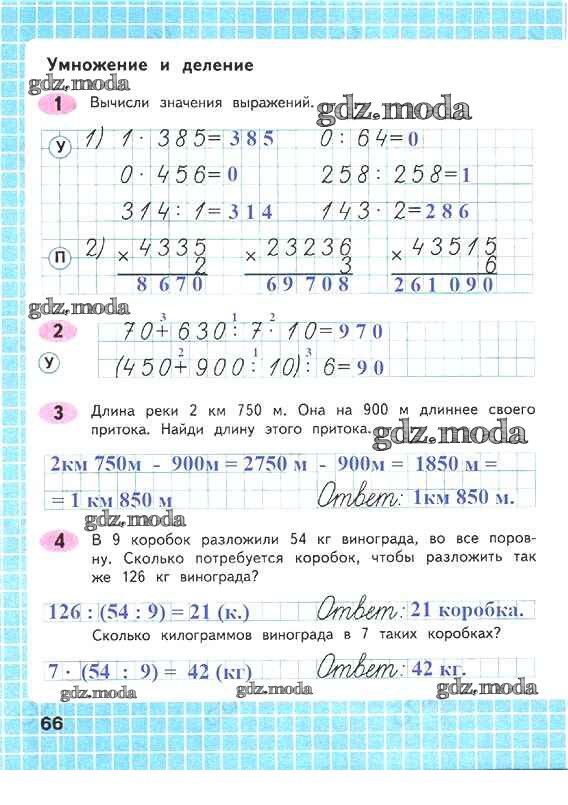 Умножение и деление
gdz.moda
1 Вычисли значения выражений. gdz.moda
У 1) 1 · 385 = 385 0 : 64 = 0
0 · 456 = 0 258 : 258 = 1
314 : 1 = 314 143 · 2 = 286
П 2) × 4335 × 23236 × 43515
2 3 6
8670 69708 261090
gdz.moda
3 1 2
2 70 + 630 : 7 · 10 = 970
2 1 3
У (450 + 900 : 10) : 6 = 90
3 Длина реки 2 км 750 м. Она на 900 м длиннее своего
притока. Найди длину этого притока. gdz.moda
2км 750м - 900м = 2750 м - 900м = 1850 м =
= 1 км 850 м Ответ: 1км 850 м.
gdz.moda
4 В 9 коробок разложили 54 кг винограда, во все поров-
ну. Сколько потребуется коробок, чтобы разложить так
же 126 кг винограда?
126 : (54 : 9) = 21 (к.) Ответ: 21 коробка.
Сколько килограммов винограда в 7 таких коробках?
7 · (54 : 9) = 42 (кг) Ответ: 42 кг.
gdz.moda gdz.moda gdz.moda
66